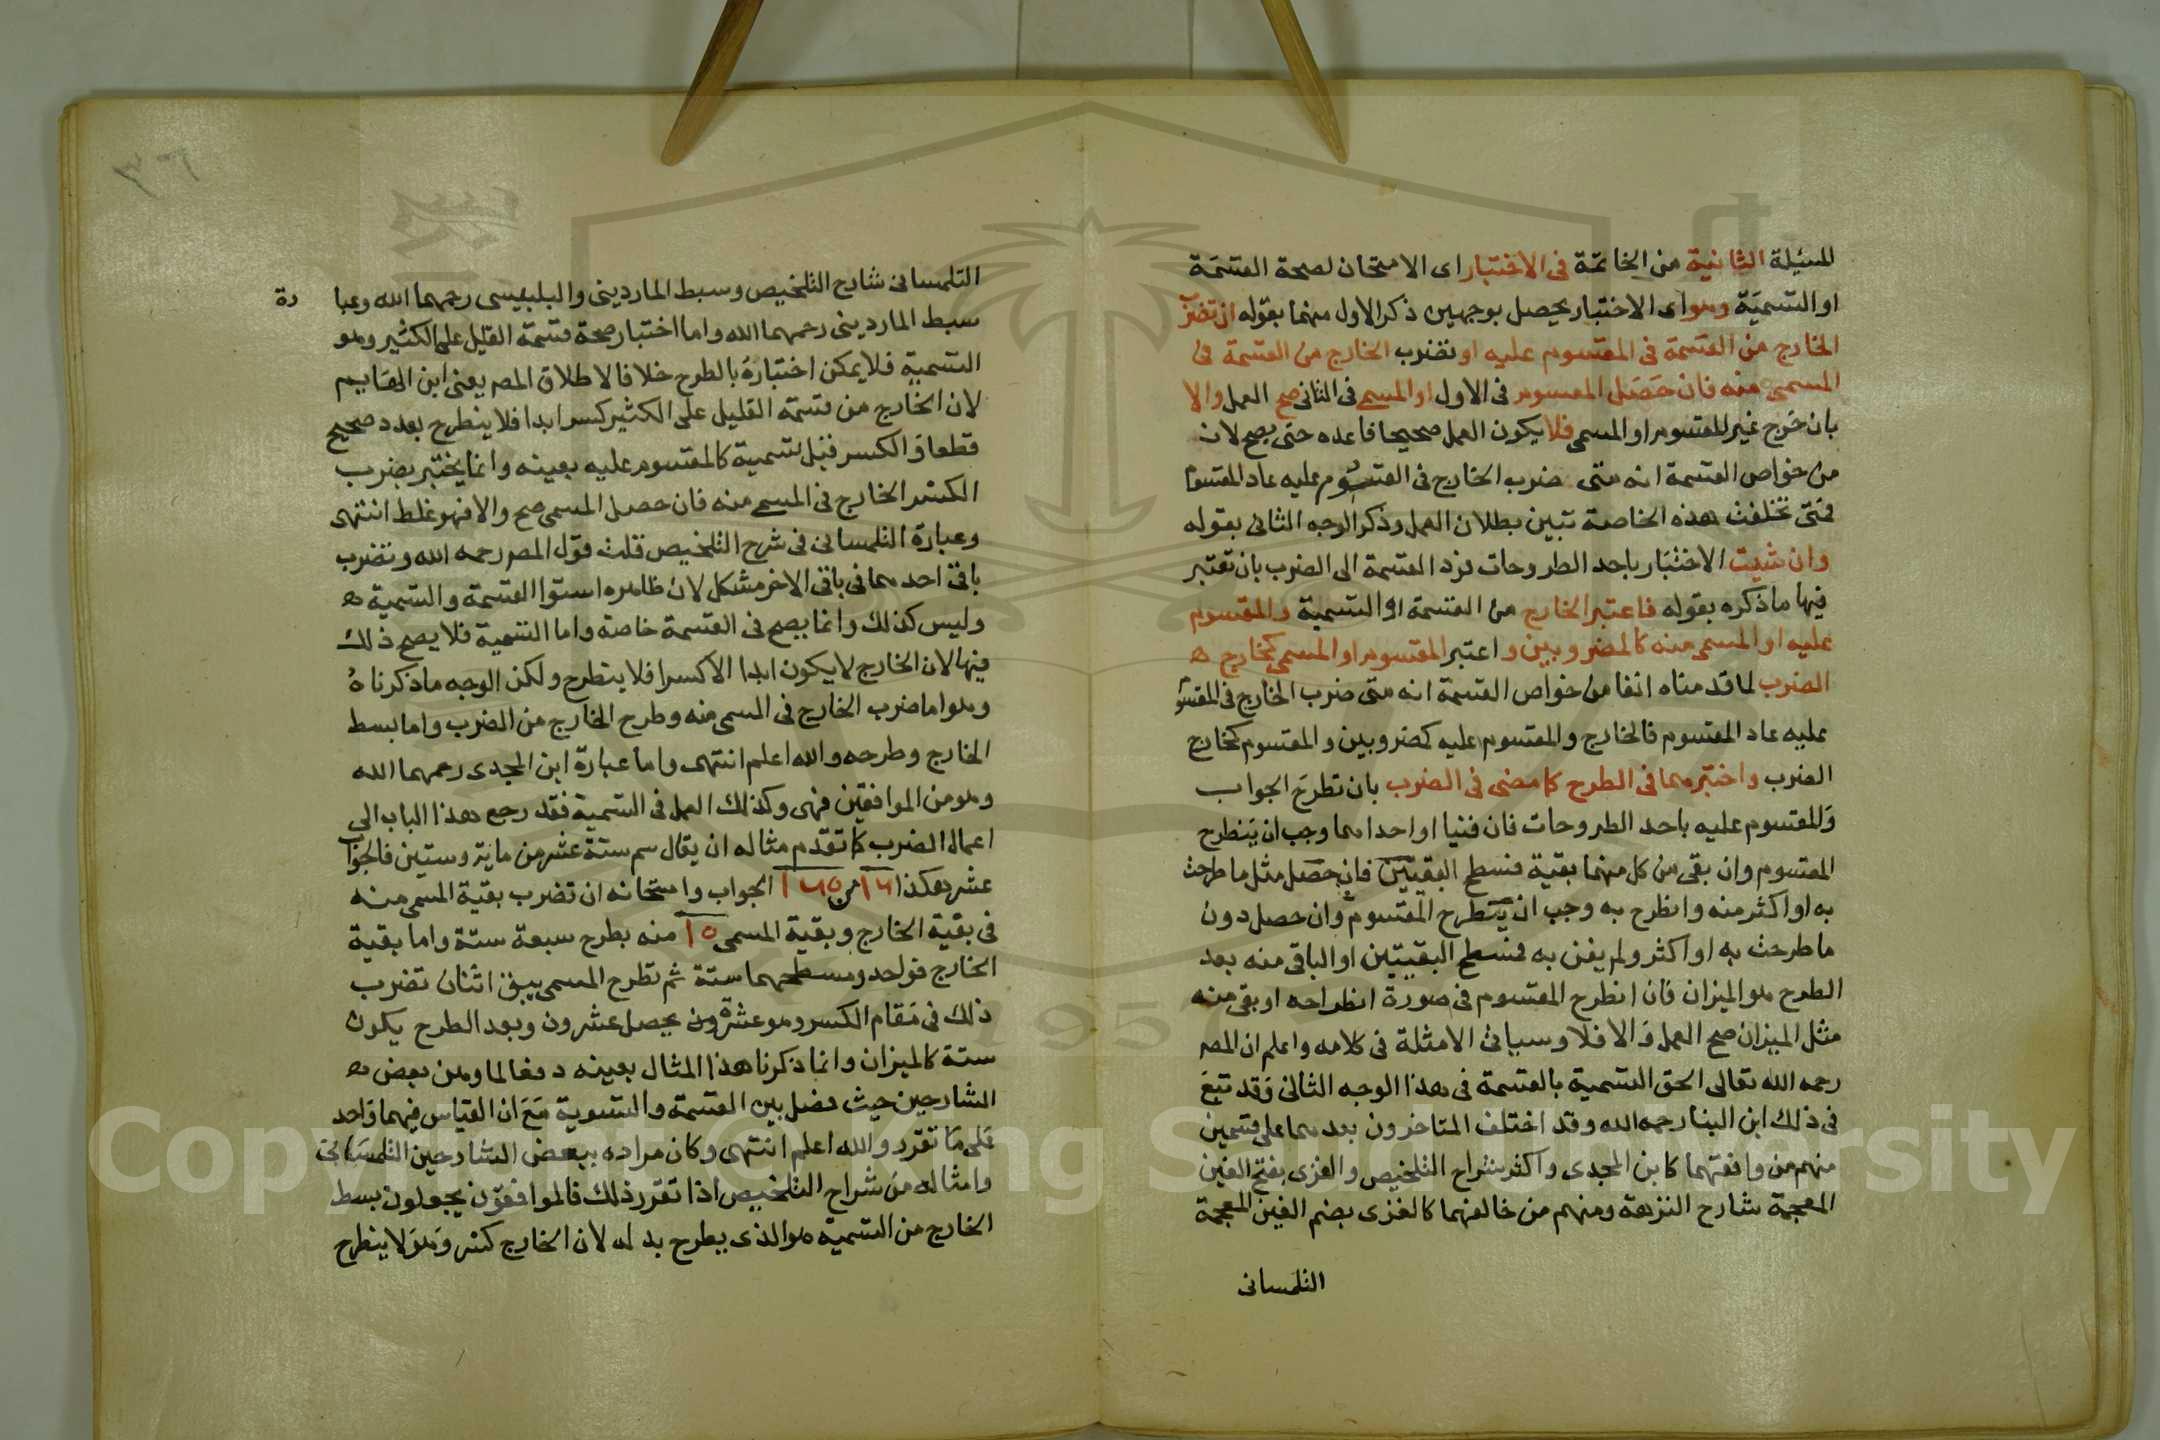 المسئلة الثانية من الخاتمة في الاختبار اى الامتحان لصحة القسمة
او التسمية وهو اى الاختبار يحصل بوجهين ذكر الاول منهما بقوله ان تضرب
الخارج من القسمة في المقسوم عليه او تضرب الخارج من القسمة في
المسمى منه فان حصل المقسوم في الاول او المسمى في الثاني صح العمل والا
بان خرج غير المقسوم او المسمى فلا يكون العمل صحيحا فاعده حتى يصح لان
من خواص القسمة انه متى ضرب الخارج في المقسوم عليه عاد المقسوم
فمتى تخلفت هذه الخاصة تبين بطلان العمل وذكر الوجه الثاني بقوله
وان شيت الاختبار باحد الطروحات فرد القسمة الى الضرب بان تعتبر
فيها ما ذكره بقوله فاعتبر الخارج من القسمة او التسمية والمقسوم
عليه او المسمى منه كالمضروبين واعتبر المقسوم او المسمى كخارج
الضرب لما قدمناه انفا من خواص القسمة انه متى ضرب الخارج في المقسو
عليه عاد المقسوم فالخارج والمقسوم عليه كمضروبين والمقسوم كخارج
الضرب واختبرهما في الطرح كما مضى في الضرب بان تطرح الجواب
والمقسوم عليه باحد الطروحات فان فنيا او احدهما وجب ان ينطرح
المقسوم وان بقى من كل منهما بقية فسطح البقيتين فان حصل مثل ما طرحت
به او اكثر منه وانطرح به وجب ان ينطرح المقسوم وان حصل دون
ما طرحت به او اكثر ولم يفن به فسطح البقيتين او الباقي منه بعد
الطرح هو الميزان فان انطرح المقسوم في صورة انطراحه او بقى منه
مثل الميزان صح العمل والا فلا وسياتي الامثلة في كلامه واعلم ان المصـ
رحمه الله تعالى الحق التسمية بالقسمة في هذا الوجه الثاني وقد تبع
في ذلك ابن البنا رحمه الله وقد اختلف المتاخرون بعدهما على قسمين
منهم من وافقهما كابن المجدى واكثر شراح التلخيص والغزى بفتح الغين
المعجمة شارح النزهة ومنهم من خالفهما كالغزى بضم الغين المعجمة
التلمساني
التلمساني شارح التلخيص وسبط المارديني والبلبيسى رحمهما الله وعبا رة
سبط المارديني رحمهما الله واما اختبار صحة قسمة القليل على الكثير وهو
التسمية فلا يمكن اختباره بالطرح خلافا لاطلاق المصـ يعنى ابن الهايم
لان الخارج من قسمة القليل على الكثير كسر ابدا فلا ينطرح بعدد صحيح
قطعا والكسر قبل تسمية كالمقسوم عليه بعينه وانما يختبر بضرب
الكسر الخارج في المسمى منه فان حصل المسمى صح والا فهو غلط انتهى
وعبارة التلمساني في شرح التلخيص قلت قول المصـ رحمه الله وتضرب
باقي احدهما في باقي الاخر مشكل لان ظاهره استوا القسمة والتسمية
وليس كذلك وانما يصح في القسمة خاصة واما التسمية فلا يصح ذلك
فيها لان الخارج لا يكون ابدا الا كسرا فلا ينطرح ولكن الوجه ما ذكرناه
وهو اما ضرب الخارج في المسمى منه وطرح الخارج من الضرب واما بسط
الخارج وطرحه والله اعلم انتهى واما عبارة ابن المجدى رحمهما الله
وهو من الموافقين فهى وكذلك العمل في التسمية فقد رجع هذا الباب الى
اعمال الضرب كما تقدم مثاله ان يقال سم ستة عشر من ماية وستين فالجواب
عشر هكذا ١٦ من ١٦٥ ا الجواب وامتحانه ان تضرب بقية المسمى منه
في بقية الخارج وبقية المسمى ١٥ منه بطرح سبعة ستة واما بقية
الخارج فواحد ومسطحهما ستة ثم تطرح المسمى يبقى اثنان تضرب
ذلك في مقام الكسر وهو عشرة يحصل عشرون وبعد الطرح يكون
ستة كالميزان وانما ذكرنا هذا المثال بعينه دفعا لما وهن بعض
الشارحين حيث فصل بين القسمة والتسوية مع ان القياس فيهما واحد
على ما تقرر والله اعلم انتهى وكان مراده ببعض الشارحين التلمساني
وامثاله من شراح التلخيص اذا تقرر ذلك فالموافقون يجعلون بسط
الخارج من التسمية هو الذى يطرح بدله لان الخارج كسر وهو لا ينطرح
Copyright © King Saud University